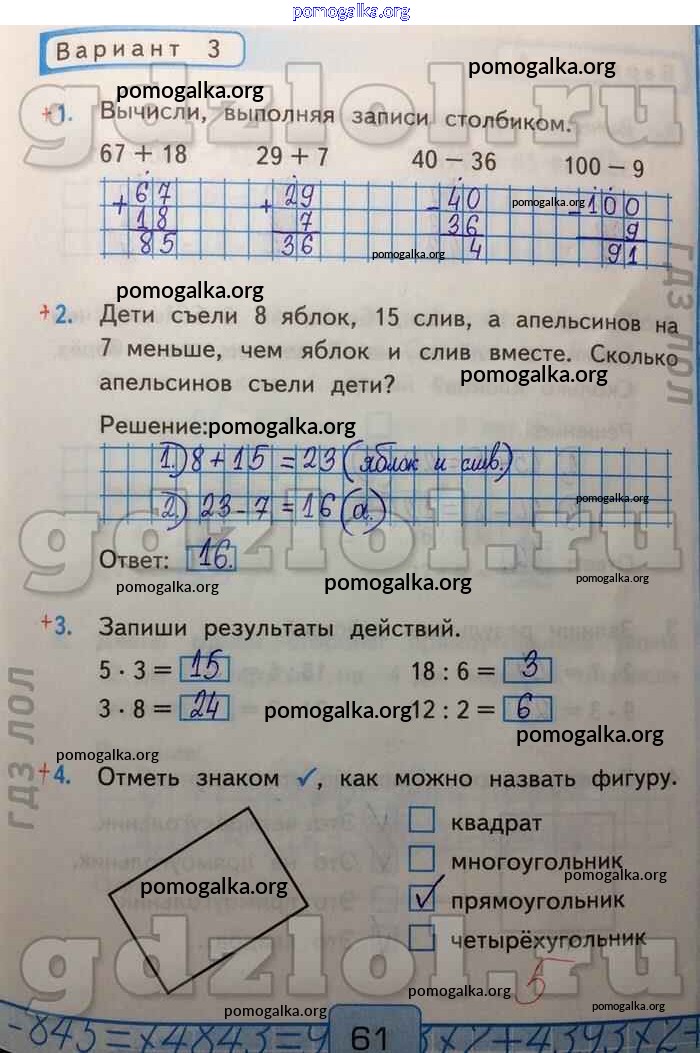 pomogalka.org
Вариант 3
pomogalka.org
pomogalka.org
gdzlol.ru
+1. Вычисли, выполняя записи столбиком.
67 + 18 29 + 7 40 − 36 100 − 9
+ 67 + 29 − 40 − 100
18 7 36 9
85 36 4 91
pomogalka.org
pomogalka.org
ГДЗ ЛОЛ
pomogalka.org
+2. Дети съели 8 яблок, 15 слив, а апельсинов на
7 меньше, чем яблок и слив вместе. Сколько
апельсинов съели дети?
pomogalka.org
Решение:
pomogalka.org
1.) 8 + 15 = 23 (яблок и слив.)
2.) 23 − 7 = 16 (а.)
pomogalka.org
gdzlol.ru
Ответ: 16.
pomogalka.org
pomogalka.org
pomogalka.org
+3. Запиши результаты действий.
5 · 3 = 15 18 : 6 = 3
3 · 8 = 24 12 : 2 = 6
pomogalka.org
pomogalka.org
pomogalka.org
ГДЗ ЛОЛ
+4. Отметь знаком ✓, как можно назвать фигуру.
квадрат
многоугольник
✓ прямоугольник
четырёхугольник
pomogalka.org
pomogalka.org
gdzlol.ru
5
pomogalka.org
pomogalka.org
pomogalka.org
61